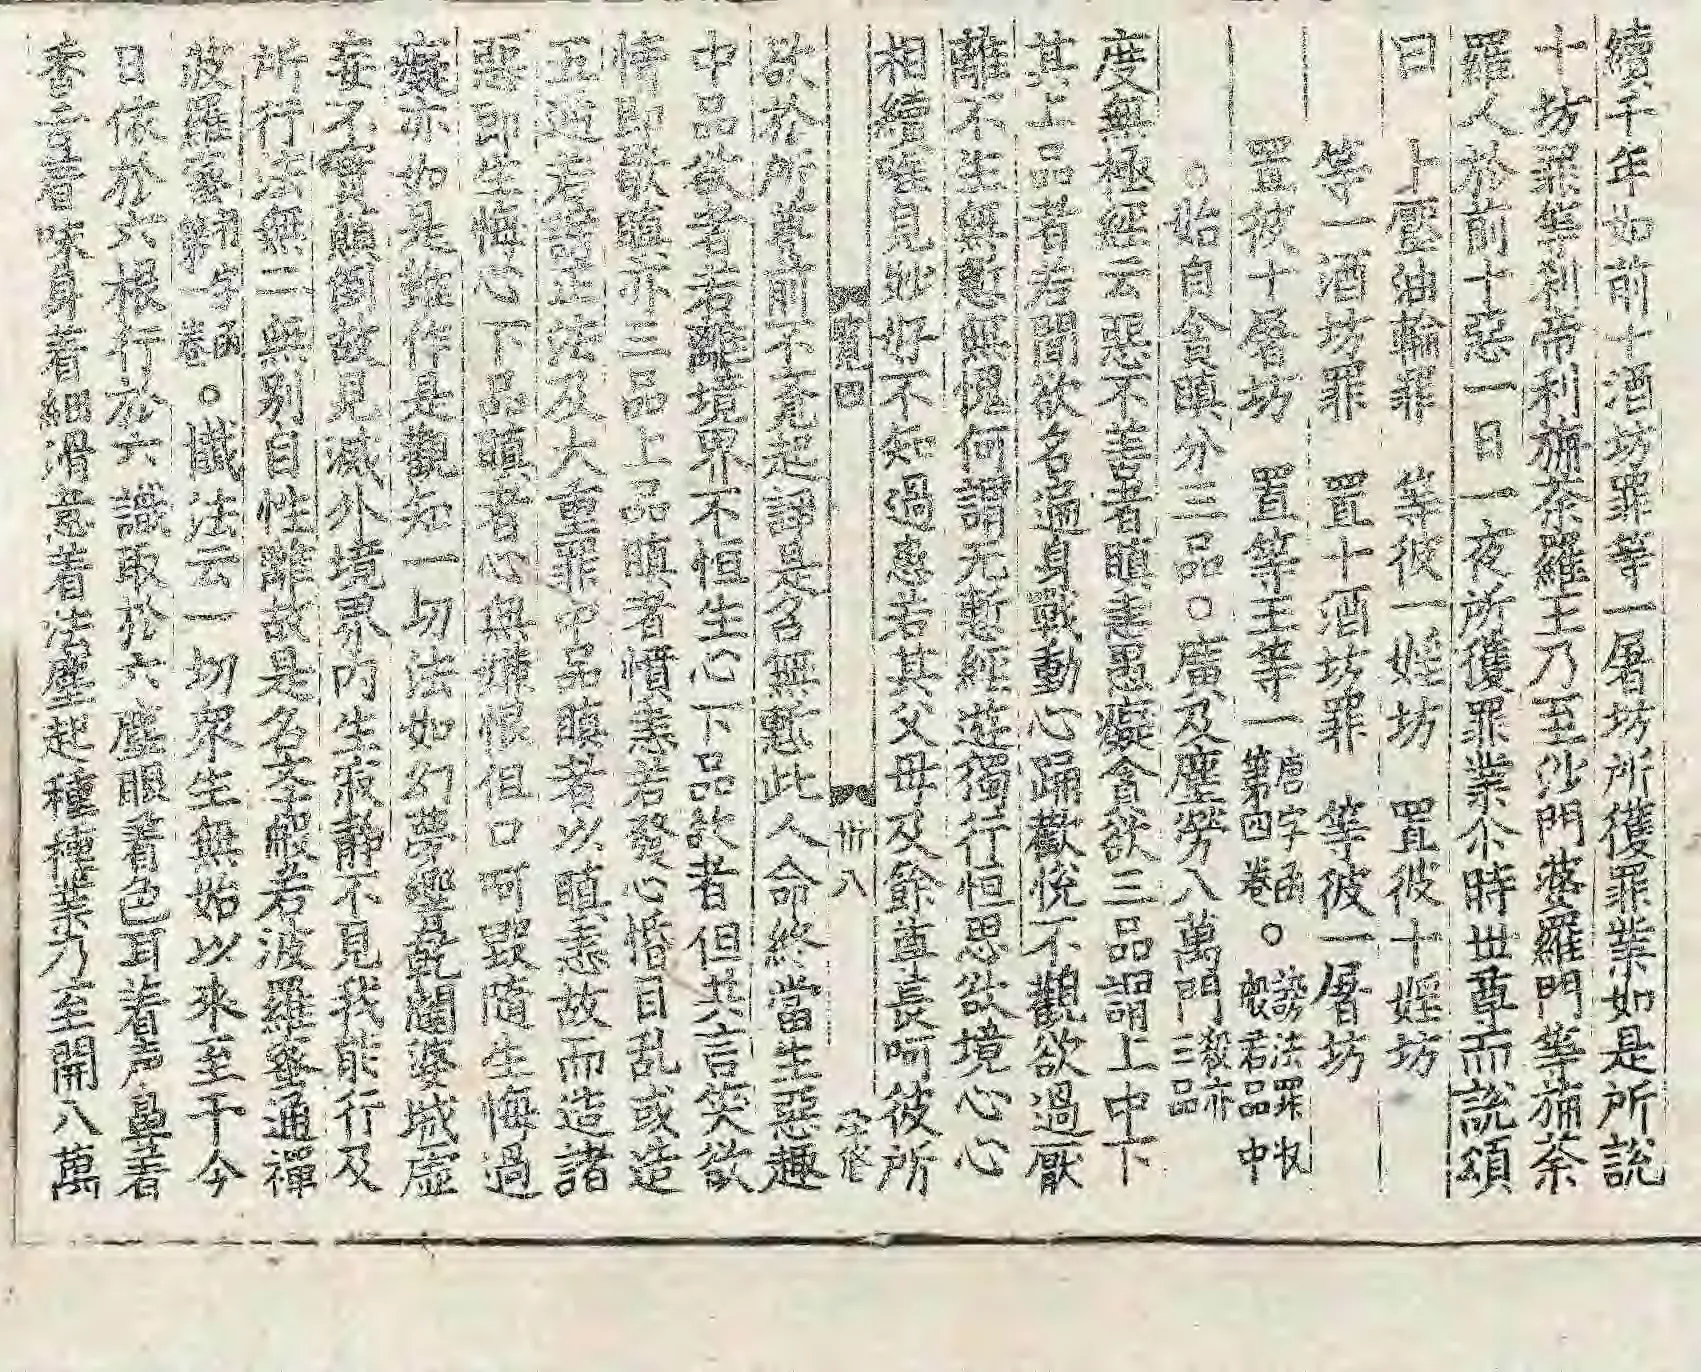 續千年如前十酒坊罪等一屠坊所獲罪業如是所說
十坊罪等刹帝利旃荼羅王乃至沙門婆羅門等旃荼
羅人於前十惡一日一夜所獲罪業尒時世尊而說頌
曰 十壓油輪罪 等彼一婬坊 置彼十婬坊
等一酒坊罪 置十酒坊罪 等彼一屠坊
置彼十屠坊 罪等王等一 唐字函第四卷 ○ 謗法罪般若品中
○始自貪瞋分三品○廣及塵勞八萬門 三品
度無極經云惡不善者瞋恚愚癡貪欲三品謂上中下
其上品者若聞欲名遍身戰動心踊歡悅不觀欲過厭
離不生無慙無愧何謂无慙經遊獨行恒思欲境心心
相續唯見妙好不知過患若其父母及餘尊長呵彼所
四 卅八
欲於所尊前不 起諍是名無慙此人命終當生惡趣
中品欲者若離境界不恒生心下品欲者但共言笑欲
情即歇瞋亦三品上品瞋者憤恚若發心惛目乱或造
五逆若謗正法及大重罪中品瞋者以瞋恚故而造諸
惡即生悔心下品瞋者心無嫌恨但口呵毀隨生悔過
癡亦如是雖作是觀知一切法如幻夢響乹闥婆城虛
妄不實顛倒故見滅外境界內生寂静不見我能行及
所行法無二無別自性離故是名 般若波羅蜜通禪
波羅蜜 字函第一卷 ○懺法云一切眾生無始以來至于今
日依於六根行於六識取於六塵眼着色耳着声鼻着
香舌着味身着細滑意着法塵起種種業乃至開八萬